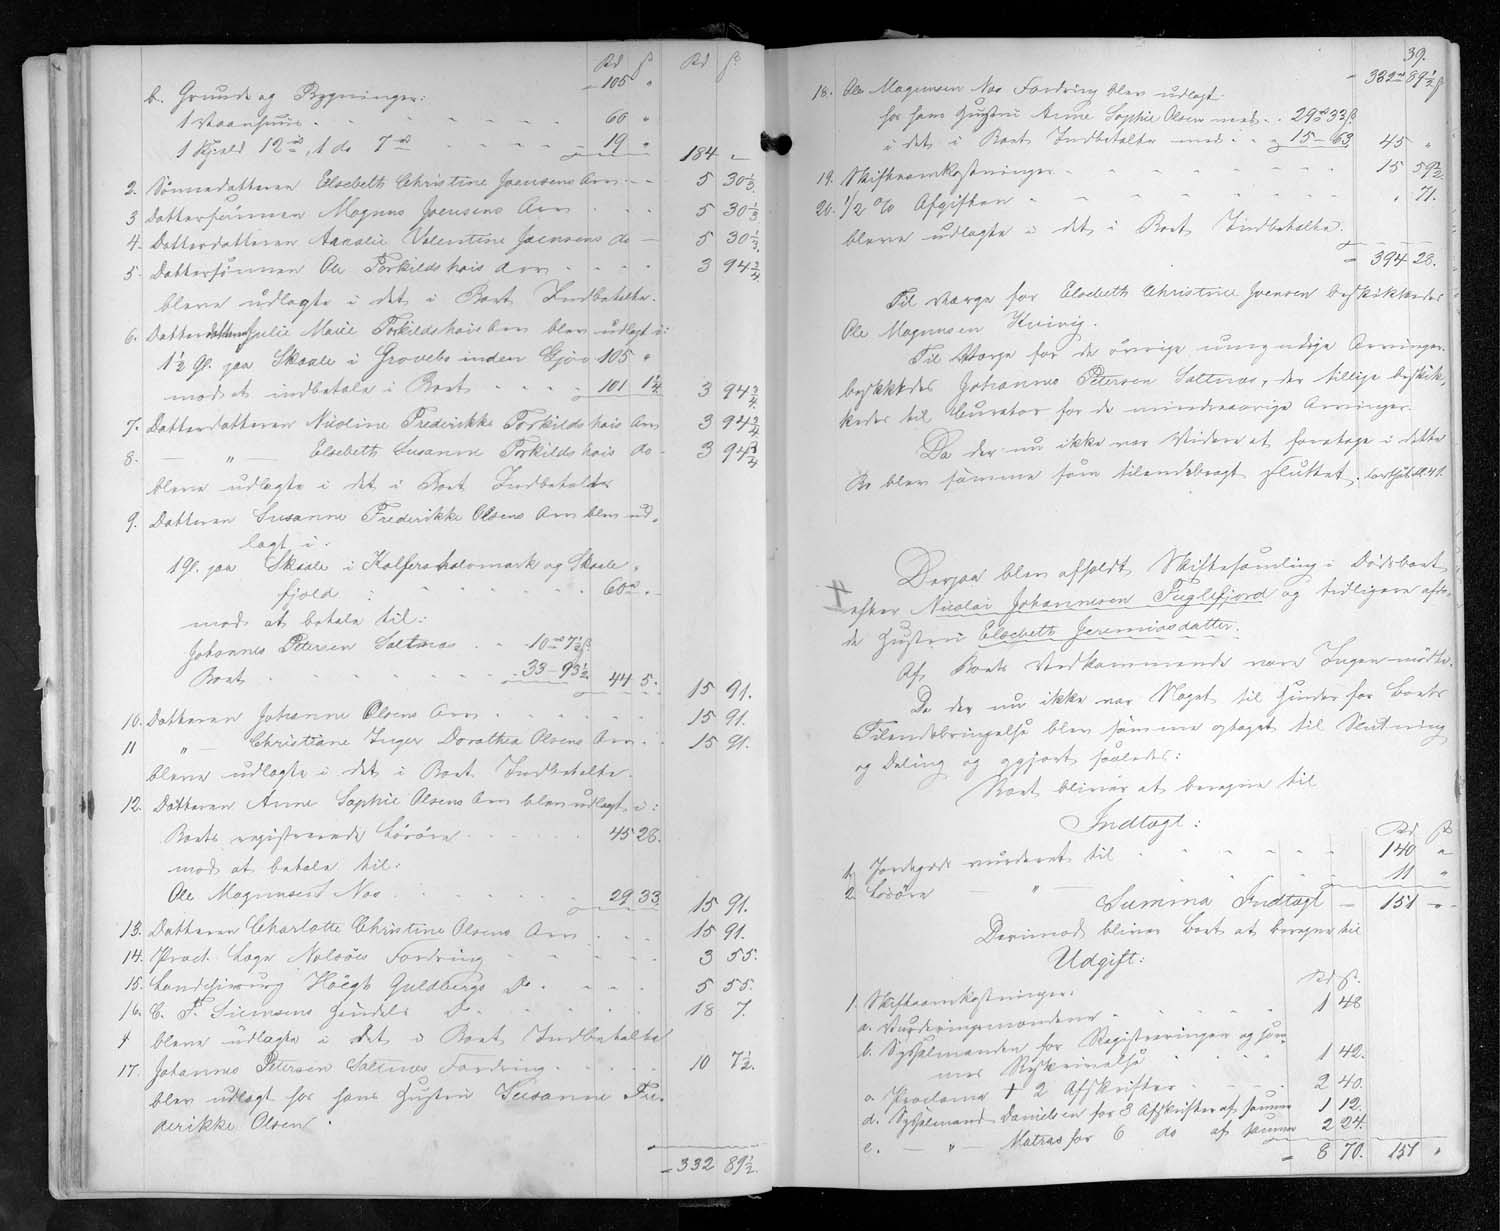 Rd ß Rd ß
b. Grunde og Bygninger: 105 "
1 Vaanhuus 60 "
1 Kjeld 12 rd, 1 do 7 rd 19 " 184 "
2. Sønnedatteren Elsebeth Christine Joensens Arv 5 30 1/3
3 Dattersønnen Magnus Joensens Arv 5 30 1/3
4. Datterdatteren Valentine Joensens do 5 30 1/3
5. Dattersønnen Ole Torkildshøis Arv 3 94 3/4
bleve udlagte i det i Boet Indbetalte.
6. Datterdatteren Julie Marie Torkildshøis Arv blev udlagt i:
1½ Gl. paa Skaale i Grovebø inden Gjov 105 "
mod at indbetale i Boet 101 1¼ 3 94 3/4
7. Datterdatteren Nicoline Frederikke Torkildshøis Arv 3 94 3/4
8. — " — Elsebeth Susanne Torkildshøis do 3 94 3/4
bleve udlagte i det i Boet Indbetalte
9. Datteren Susanne Frederikke Olsens Arv blev ud-
lagt i:
1 Gl. paa Skaale i Kalfarahalvmark og Skaale-
fjeld : 60 rd "
mod at betale til:
Johannes Petersen Saltnæs 10 rd 7½ ß
Boet 33 – 93½ 44 5. 15 91.
10. Datteren Johanne Olsens Arv 15 91.
11 " — Christiane Inger Dorothea Olsens Arv 15 91.
bleve udlagte i det i Boet Indbetalte.
12. Datteren Anne Sophie Olsens Arv blev udlagt i:
Boets registrerede Løsøre 45 28.
mod at betale til:
Ole Magnussen Næs 29 33 15 91.
13. Datteren Charlotte Christine Olsens Arv 15 91.
14. Præst Nolsøes Fordring 3 55.
15. Landchirurg Høegh Guldbergs Do. 5 55.
16. C. F. Siemsens Handels Do 18 7.
bleve udlagte i det i Boet Indbetalte
17. Johannes Petersen Saltnæs Fordring 10 7½.
blev udlagt for hans Hustru Susanne Fre-
derikke Olsen.
332 89½.
39.
332 rd 89½ ß
18. Ole Magnussen Næs Fordring blev udlagt
for hans Hustru Anne Sophie Olsen med 29 rd 33 ß
i det i Boet Indbetalte med 15 – 63 45 "
19. Skifteomkostninger 15 59½
20. 1/2 % Afgiften " 71.
bleve udlagte i det i Boet Indbetalte.
394 28.
Til Værge for Elsebeth Christine Joensen beskikkedes
Ole Magnussen Kvivig.
Til Værge for de øvrige umyndige Arvinger
beskikkedes Johannes Petersen Saltnæs, der tillige beskik-
kedes til Curator for de mindreaarige Arvinger.
Da der nu ikke var Videre at foretage i dette
Bo blev samme som tilendebragt sluttet.
Derpaa blev afholdt Skiftesamling i Dødsboet
efter Nicolai Johannesen Fuglefjord og tidligere afdø-
de Hustru Elsebeth Jeremiasdatter.
Af Boets Vedkommende vare Ingen mødte.
Da der nu ikke var Noget til Hinder for Boets
Tilendebringelse blev samme optaget til Slutning
og Deling og opgjort saaledes:
Boet bliver at beregne til
Indtægt:
Rd ß
1. Jordegods vurderet til 140 "
2. Løsøre — " — 11 "
Summa Indtægt 151 "
Derimod bliver Boet at beregne til
Udgift:
Rd ß.
1. Skifteomkostninger:
a. Vurderingsmændene 1 48
b. Sysselmanden for Registreringen og sam-
mes Beskrivelse 1 42.
c. Proclama + 2 Afskrifter 2 40.
d. Sysselmand Danielsen for 3 Afskrifter af samme 1 12.
e. — " — Matras for 6 do af samme 2 24.
8 70. 151 "